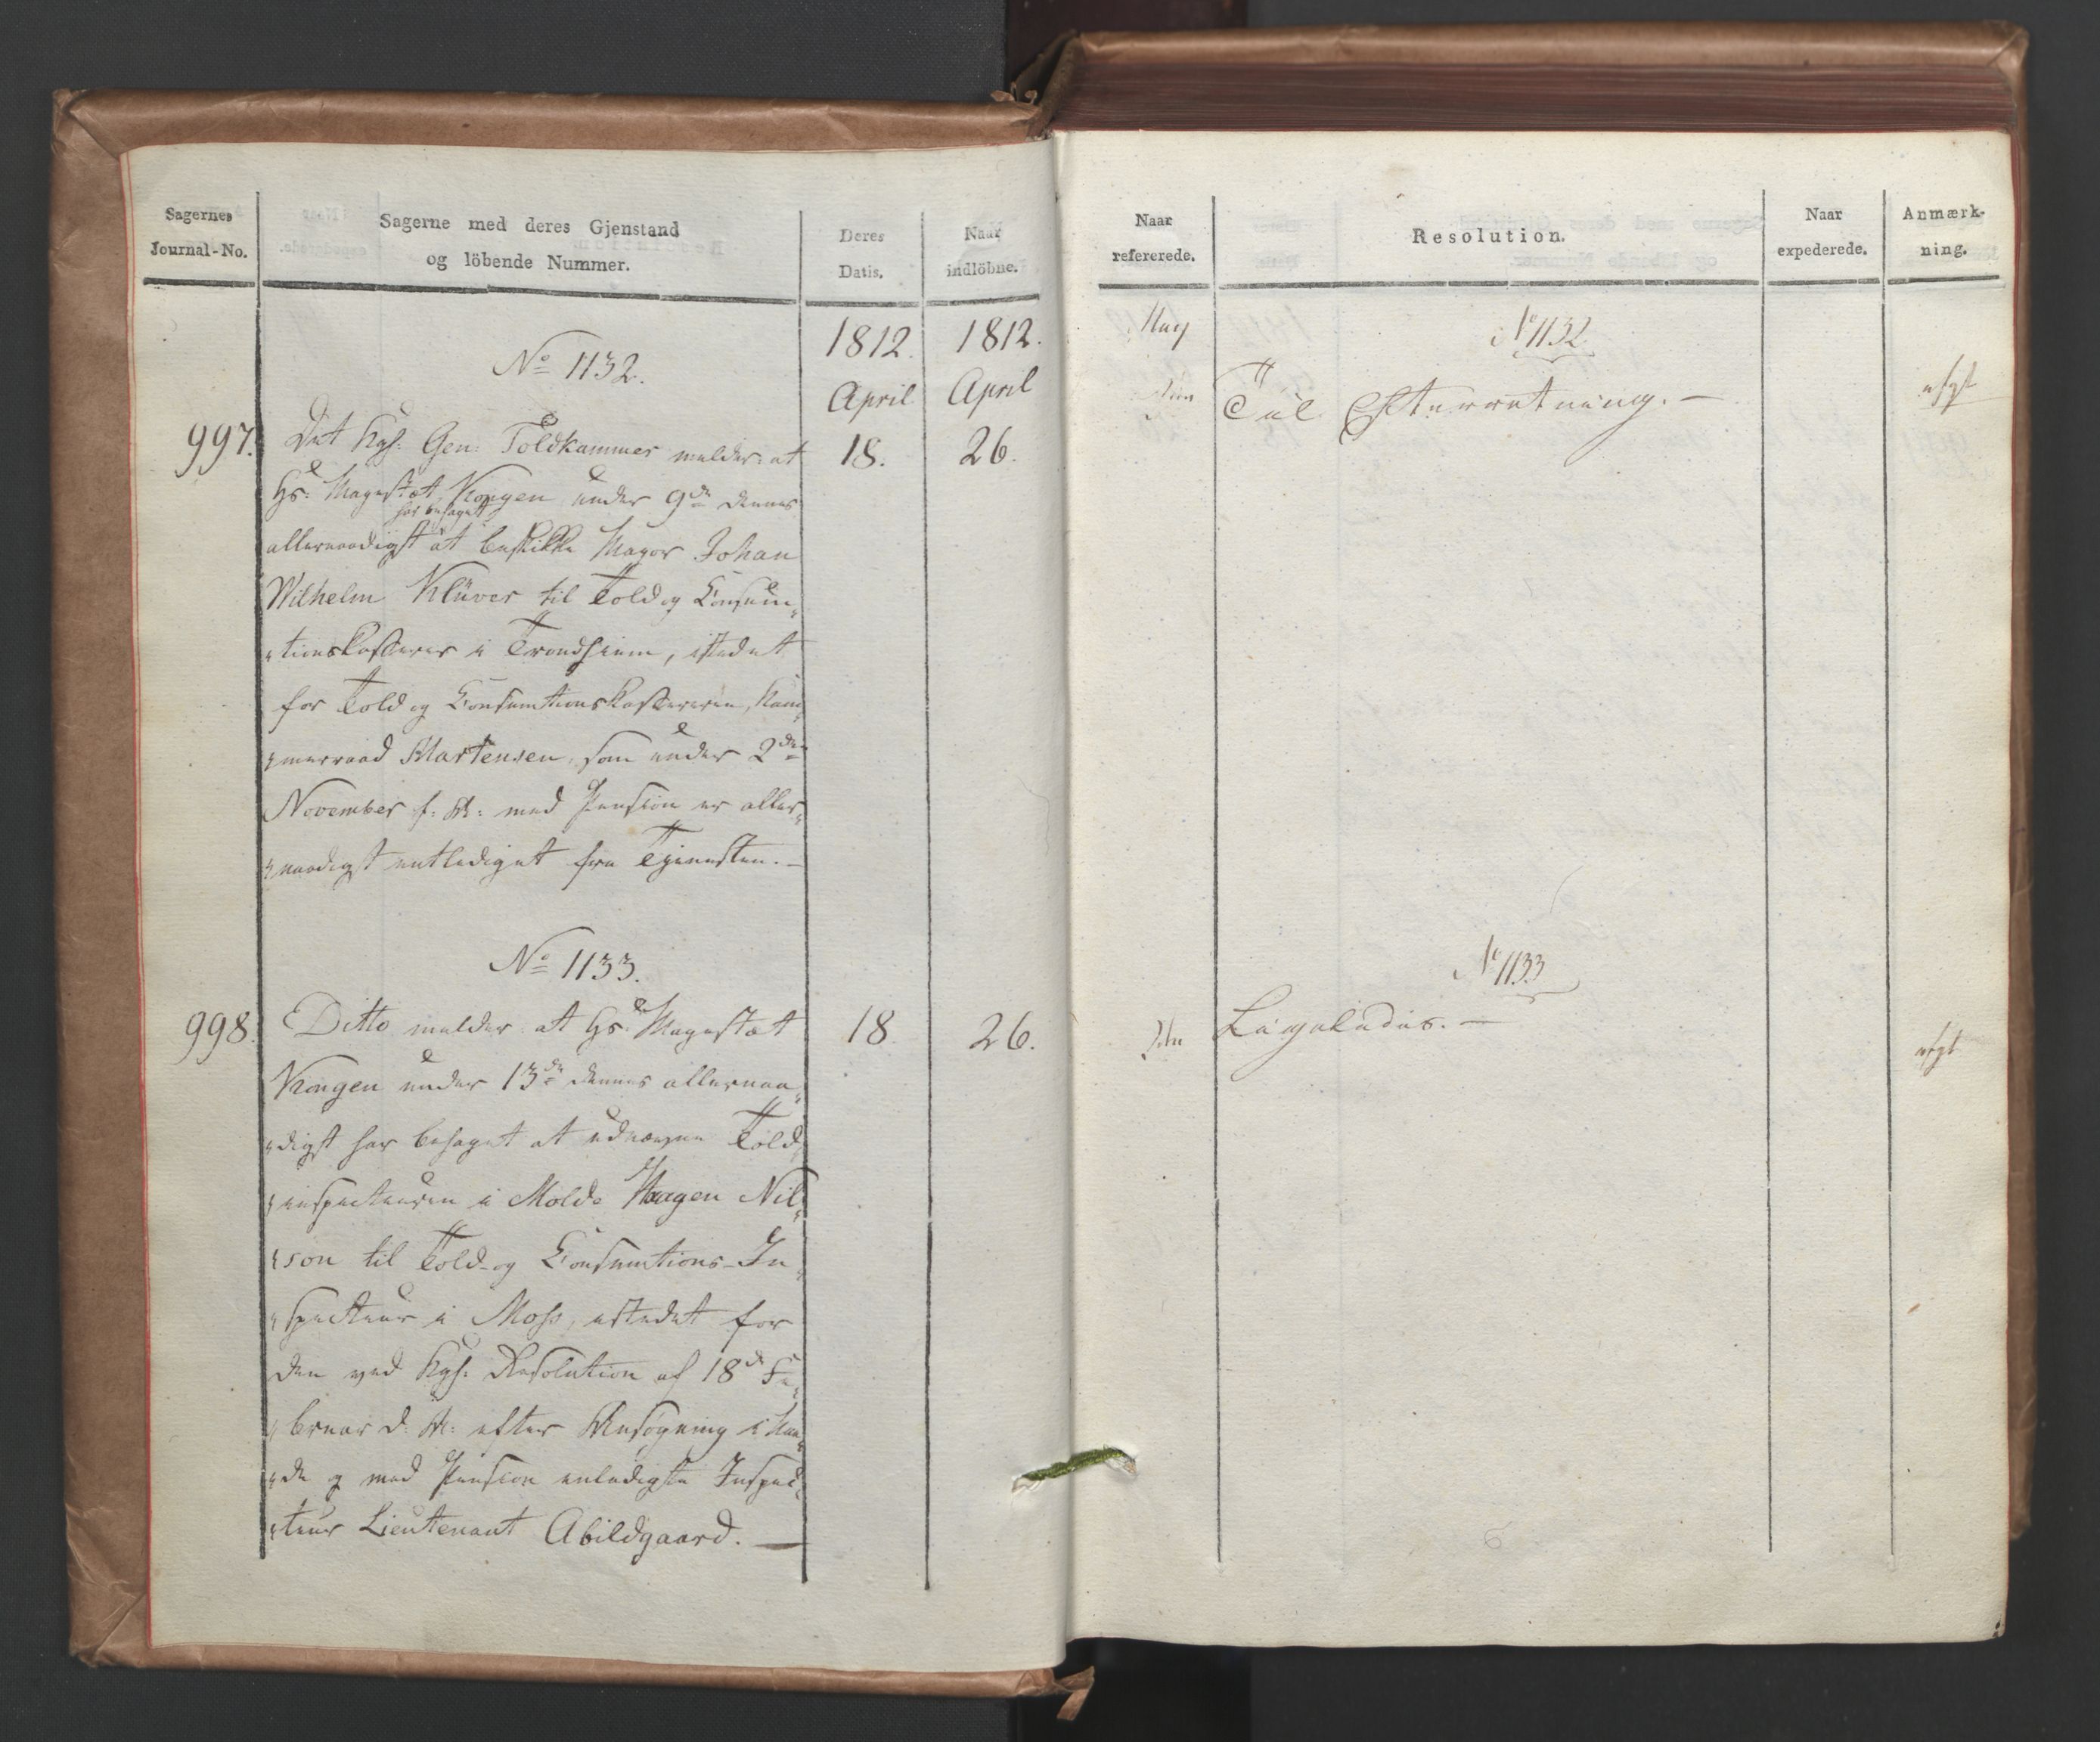 Sagernes
Journal-No.
Sagerne med deres Gjenstand
og löbende Nummer.
Deres
Datis.
Naar
indlöbne.
1812.
1812.
No 1132.
April
April
997. Det Kgl. Gen: Toldkammer melder at
18.
26.
Hs: Mayestæt Kongen under 9de dennes
har behaget
allernaadigst at beskikke Mayor Johan
Wilhelm Klüver til Told og Consum„
„tionskasserer i Trondhiem, istedet
for Told og Consumtionskassereren, Kam„
„merraad Martensen, som under 2den
November f: A: med Pension er aller„
„naadigst entlediget fra Tjenesten. —
No 1133.
998. Ditto melder at Hs: Mayestæt
18.
26.
Kongen under 13de dennes allernaa„
„digst har behaget at udnævne Told„
„inspecteuren i Molde Haagen Nil„
„son til Told- og Consumtions-In„
„specteur i Moss, istedet for
den ved Kgl. Resolution af 18de Fe„
„bruar d. A: efter Ansøgning i Naa„
„de og med Pension entledigede Inspec„
„teur Lieutenant Abildgaard. —
Naar
refererede.
Resolution.
Naar
expederede.
Anmærk-
ning.
May
No 1132
2den
Til Efterretning. —
afgt
No 1133
2den
Ligeledes. —
afgt
6